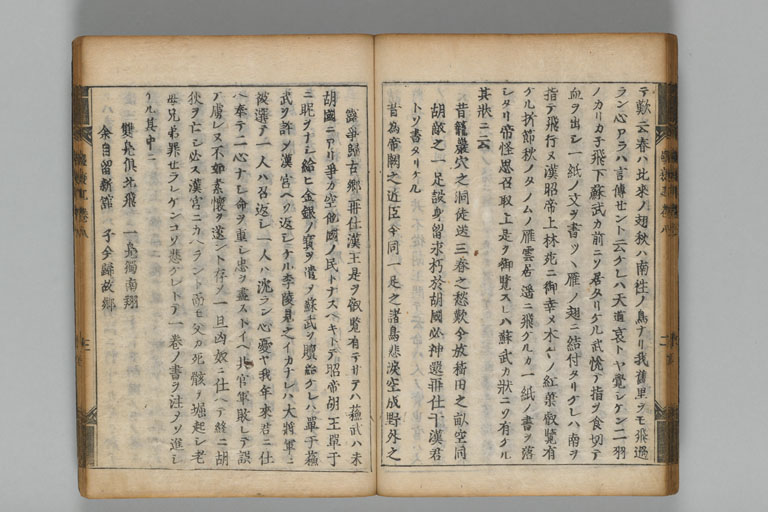 テ歎云春ハ北來ノ翅秋ハ南往ノ鳥ナリ我舊里ヲモ飛過
ラン心アラハ言傳セント云ケレハ天道哀トヤ覺シケン一羽
ノカリカ子飛下蘇武カ前ニソ居タリケル武悦テ指ヲ食切テ
血ヲ出シ一紙ノ文ヲ書ツヽ雁ノ翅ニ結付タリケレハ南ヲ
指テ飛行ヌ漢昭帝上林苑ニ御幸メ木ニノ紅葉叡覧有
ケル折節秋ノタノムノ雁雲居遥ニ飛ケルカ一紙ノ書ヲ落
シタリ帝怪思召取上是ヲ御覧スレハ蘇武カ状ニソ有ケル
其状ニ云
昔籠巖穴之洞徒送三春之愁歎今放稲田之畝空同
胡敵之一足設身留求朽於胡國必神還再仕于漢君
トソ書タリケル
昔為帝闕之近臣今同一足之諸鳥悲涙空成野外之
歸古郷再仕漢王是ヲ叡覧有テサテハ蘇武ハ未
胡國ニアリ争カ空他國ノ民トナスヘキトテ昭帝胡王單于
ニ眤ヲナシ給ヒ金銀ノ寶ヲ遣ヲ蘇武ヲ贖給ケレハ單于蘇
武ヲ許ツ漢宮ヘソ返シケル李陵是之イカナレハ大將軍ニ
被選テ一人ハ召返シ一人ハ沈ラン心憂ヤ我年來君ニ仕
ヘ奉テ二心ナレ命ヲ重シ忠ヲ盡ストイヘ共官軍敗レテ誤
テ虜レヌ不如素懷ヲ遂ント存ノ一旦凶奴ニ仕ヘテ終ニ胡
狄ヲ亡シ必ス漢宮ニカヘラント而モ父カ死骸ヲ堀起シ老
母兄弟罪セラレケンコソ悲ケレトテ一巻ノ書ヲ注メソ進シ
ケル其中ニ
雙鳧俱北飛 一鳧獨南翔
余自留新舘 子今歸故郷